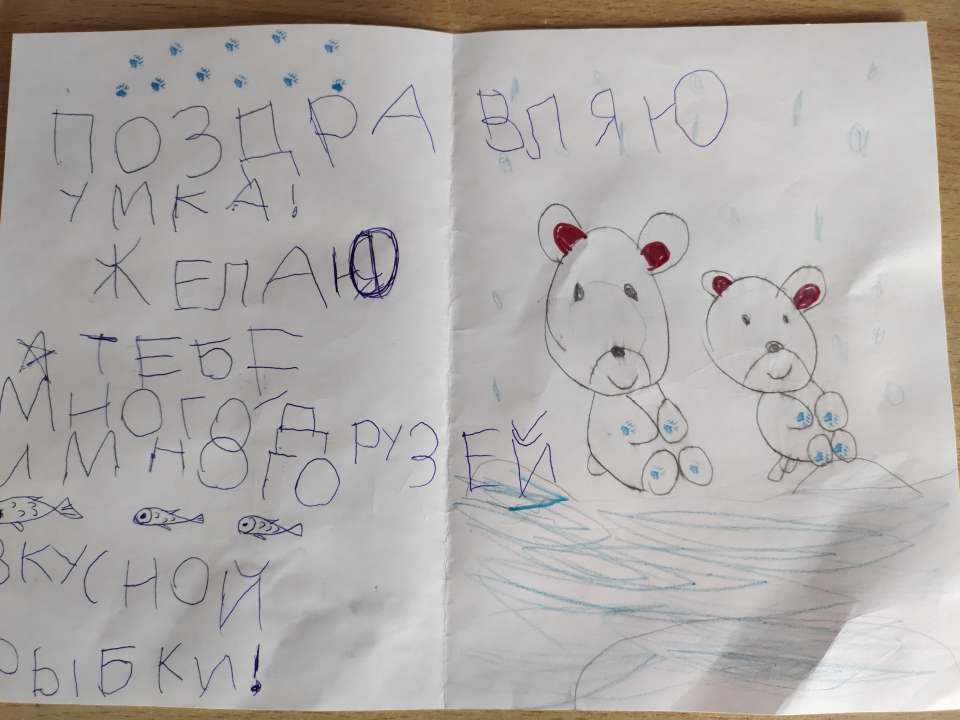 ПОЗДРАВЛЯЮ
УМКА!
ЖЕЛАЮ
Я ТЕБЕ
МНОГО ДРУЗЕЙ
И МНОГО
ВКУСНОЙ
РЫБКИ!